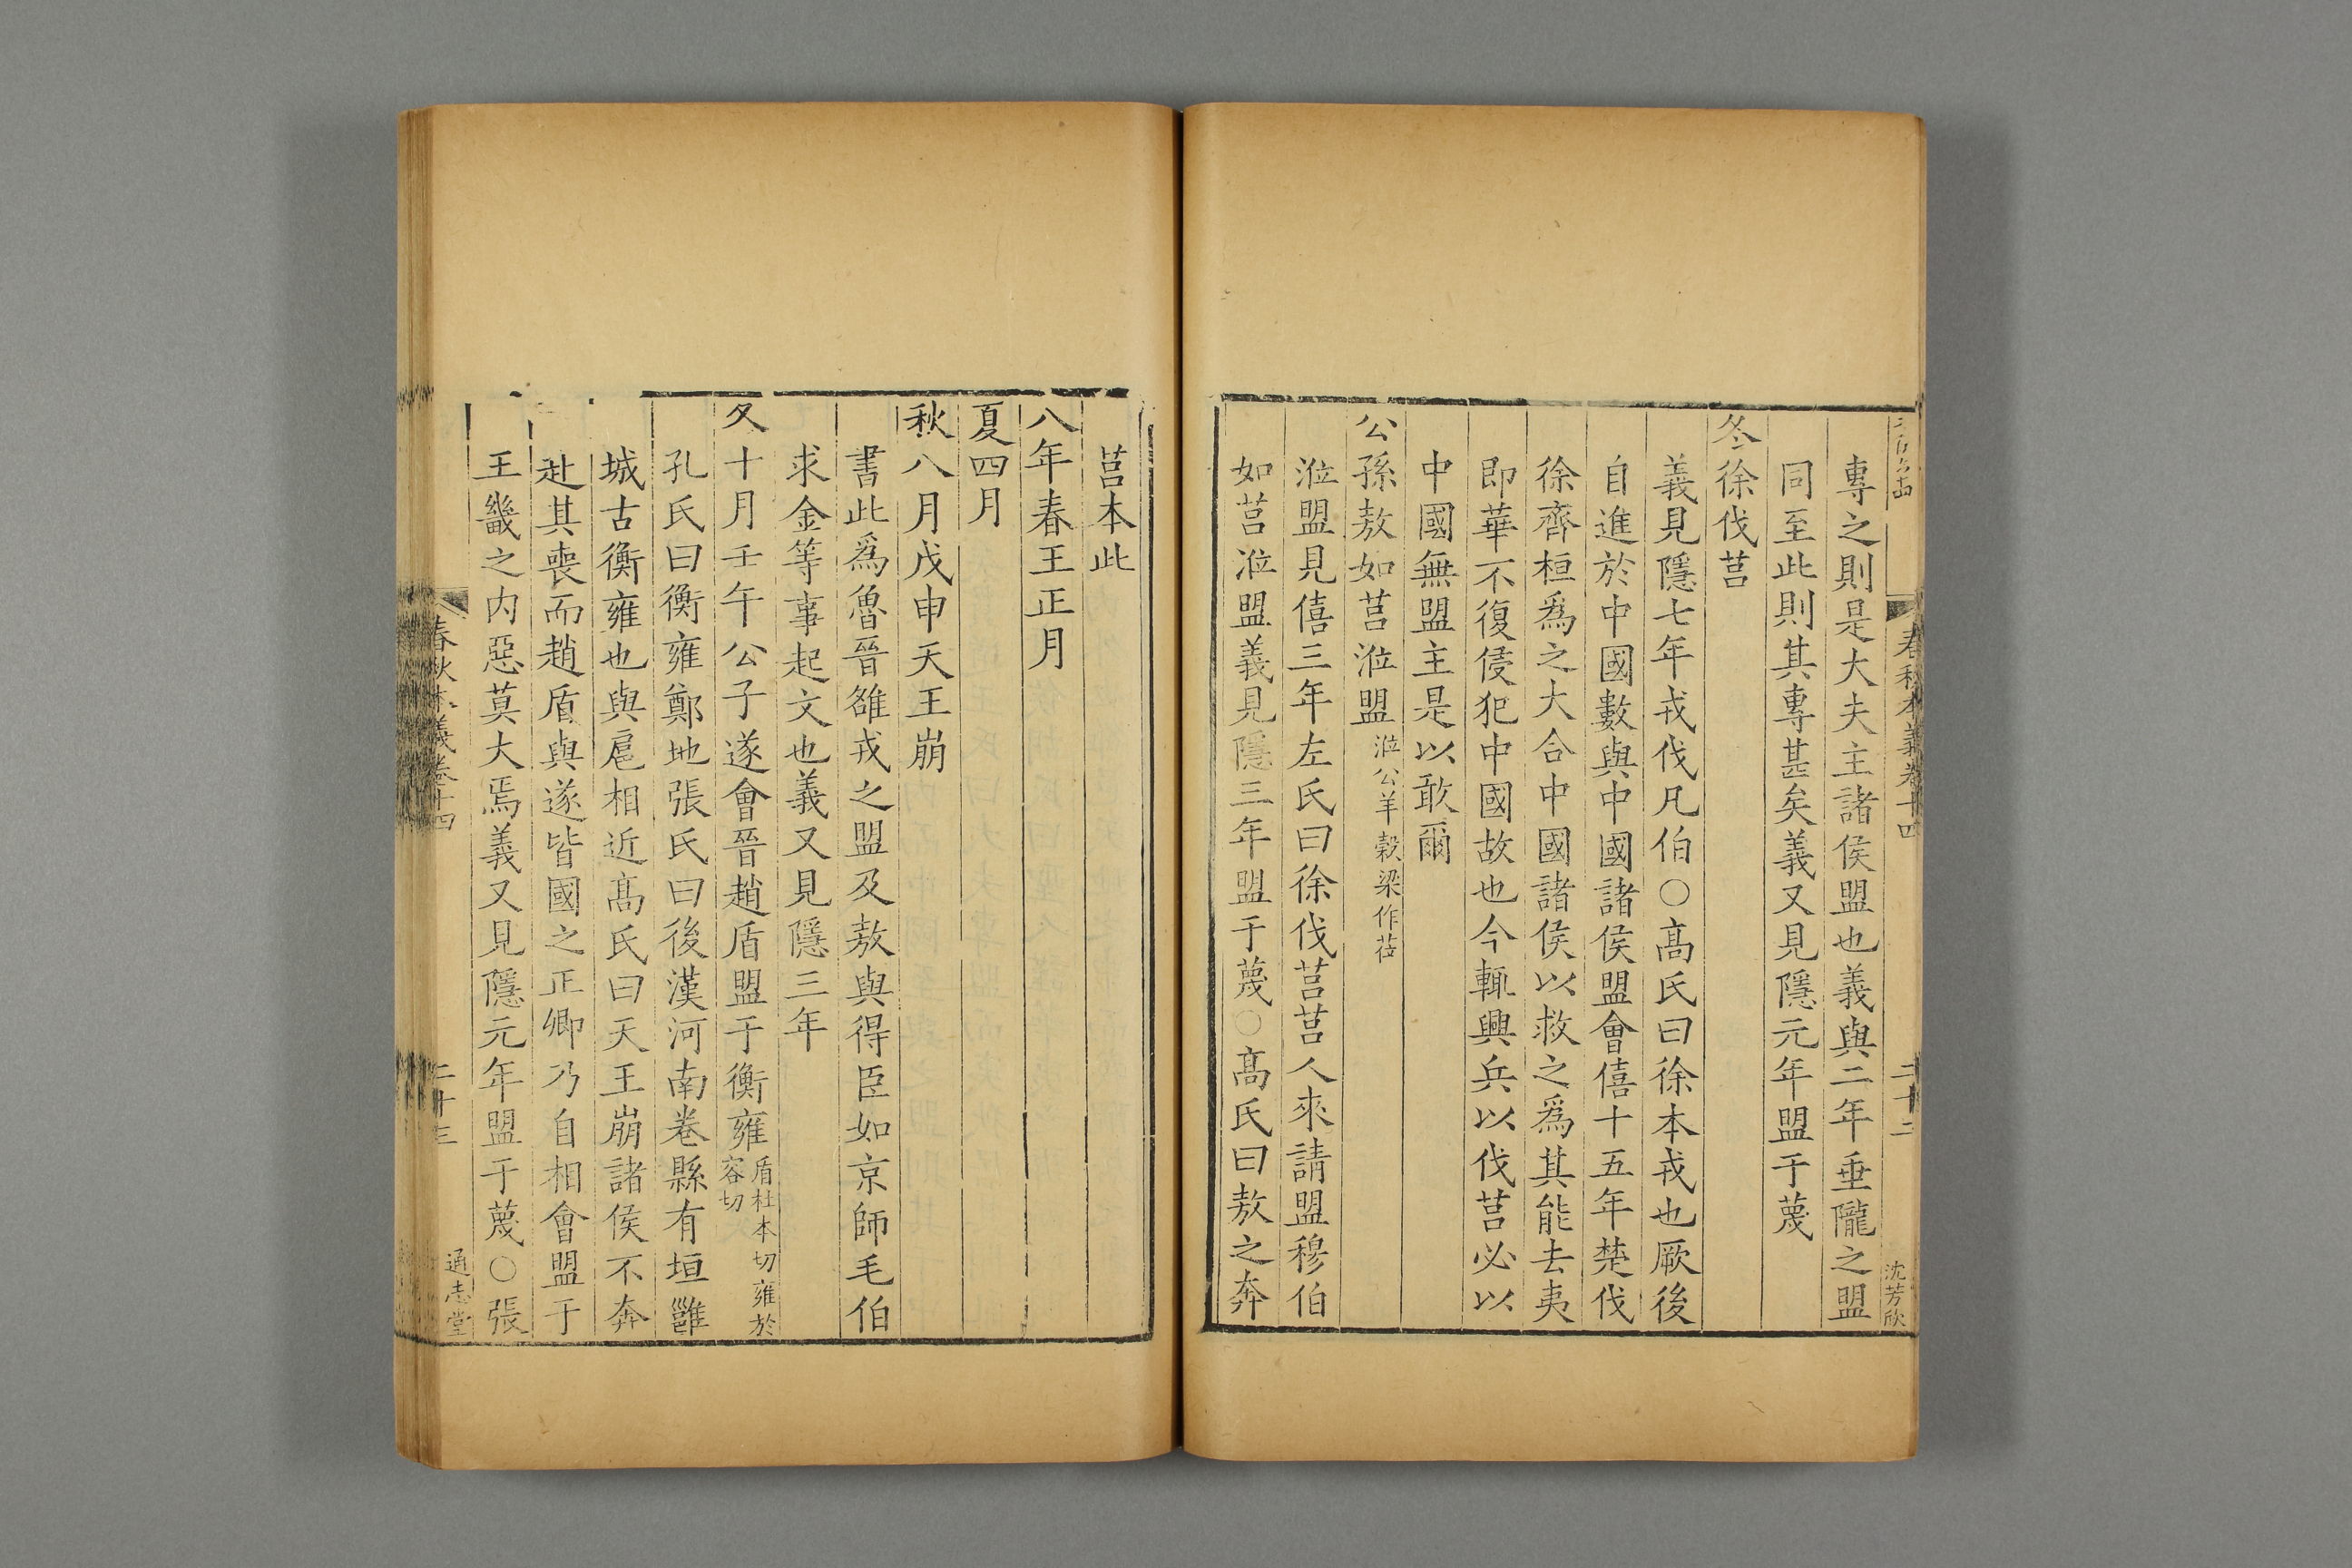 春秋本義卷十四
二十二
沈芳欣
專之則是大夫主諸侯盟也義與二年垂隴之盟
同至此則其專甚矣義又見隱元年盟于蔑
冬徐伐莒
義見隱七年戎伐凡伯○髙氏曰徐本戎也厥後
自進於中國數與中國諸侯盟會僖十五年楚伐
徐齊桓爲之大合中國諸侯以救之爲其能去夷
即華不復侵犯中國故也今輒興兵以伐莒必以
中國無盟主是以敢爾
公孫敖如莒涖盟涖公羊穀梁作莅
涖盟見僖三年左氏曰徐伐莒莒人來請盟穆伯
如莒涖盟義見隱三年盟于蔑○髙氏曰敖之奔
莒本此
八年春王正月
夏四月
秋八月戊申天王崩
書此爲魯晉雒戎之盟及敖與得臣如京師毛伯
求金等事起文也義又見隱三年
冬十月壬午公子遂會晉趙盾盟于衡雍盾杜本切雍於容切
孔氏曰衡雍鄭地張氏曰後漢河南卷縣有垣雝
城古衡雍也與扈相近髙氏曰天王崩諸侯不奔
赴其喪而趙盾與遂皆國之正卿乃自相會盟于
王畿之内惡莫大焉義又見隱元年盟于蔑○張
春秋本義卷十四
二十三
通志堂